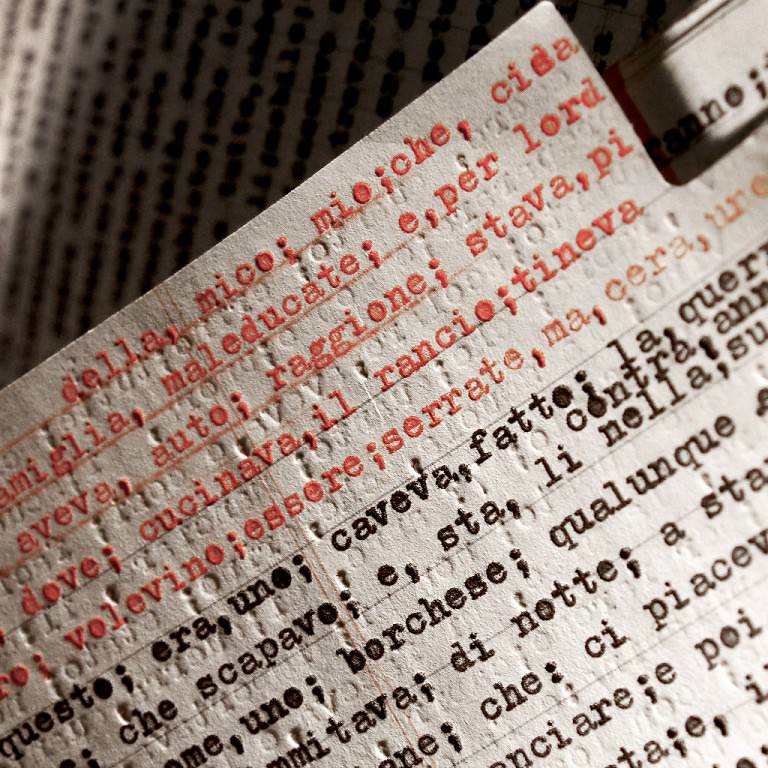 della, mico; mio;che, cida
amiglia, maleducate; e,per lord
aveva, auto; raggione; stava,pi
, dove; cucinava,il rancio;tineva
ro; volevino;essere;serrate,ma,cera,ure
questo; era,uno; caveva,fatto; la,querr
; che scapavo; e, sta, li nella;su
contra,ann
ome,uno; borchese; qualunque
mmitava; di notte; a sta
ane; che; ci piacev
anciare;e poi
ta;e, i
anno;